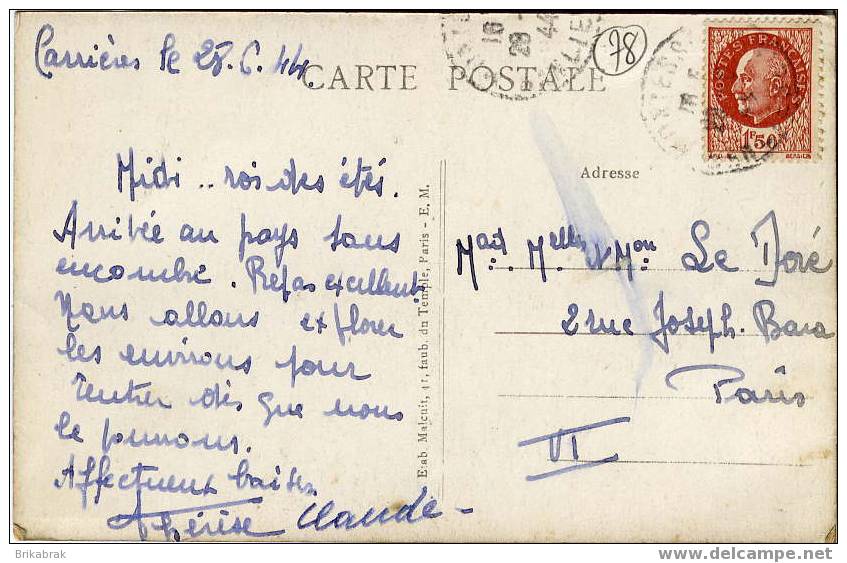 Carrières le 28.6.44.
CARTE POSTALE
16
28
44
78
POSTES FRANÇAISES
1F50
Midi .. roi des étés.
Arrivée au pays sans
encombre. Repas excellent.
Nous allons explorer
les environs pour
rentrer dès que nous
le pourrons.
Affectueux baisers
Thérèse Claude
Etab. Malcuit, 41, faub. du Temple, Paris - E. M.
Adresse
Le Doré
2 rue Joseph. Bara
Paris
VI
Brikabrak
www.delcampe.net